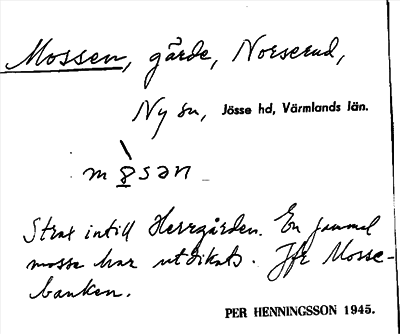 Mossen, gärde, Norserud,
Ny sn, Jösse hd, Värmlands län.
m8sən
Strax intill Herrgården. En gammal
mosse har utdikats. Jfr Mosse-
banken.
PER HENNINGSSON 1945.